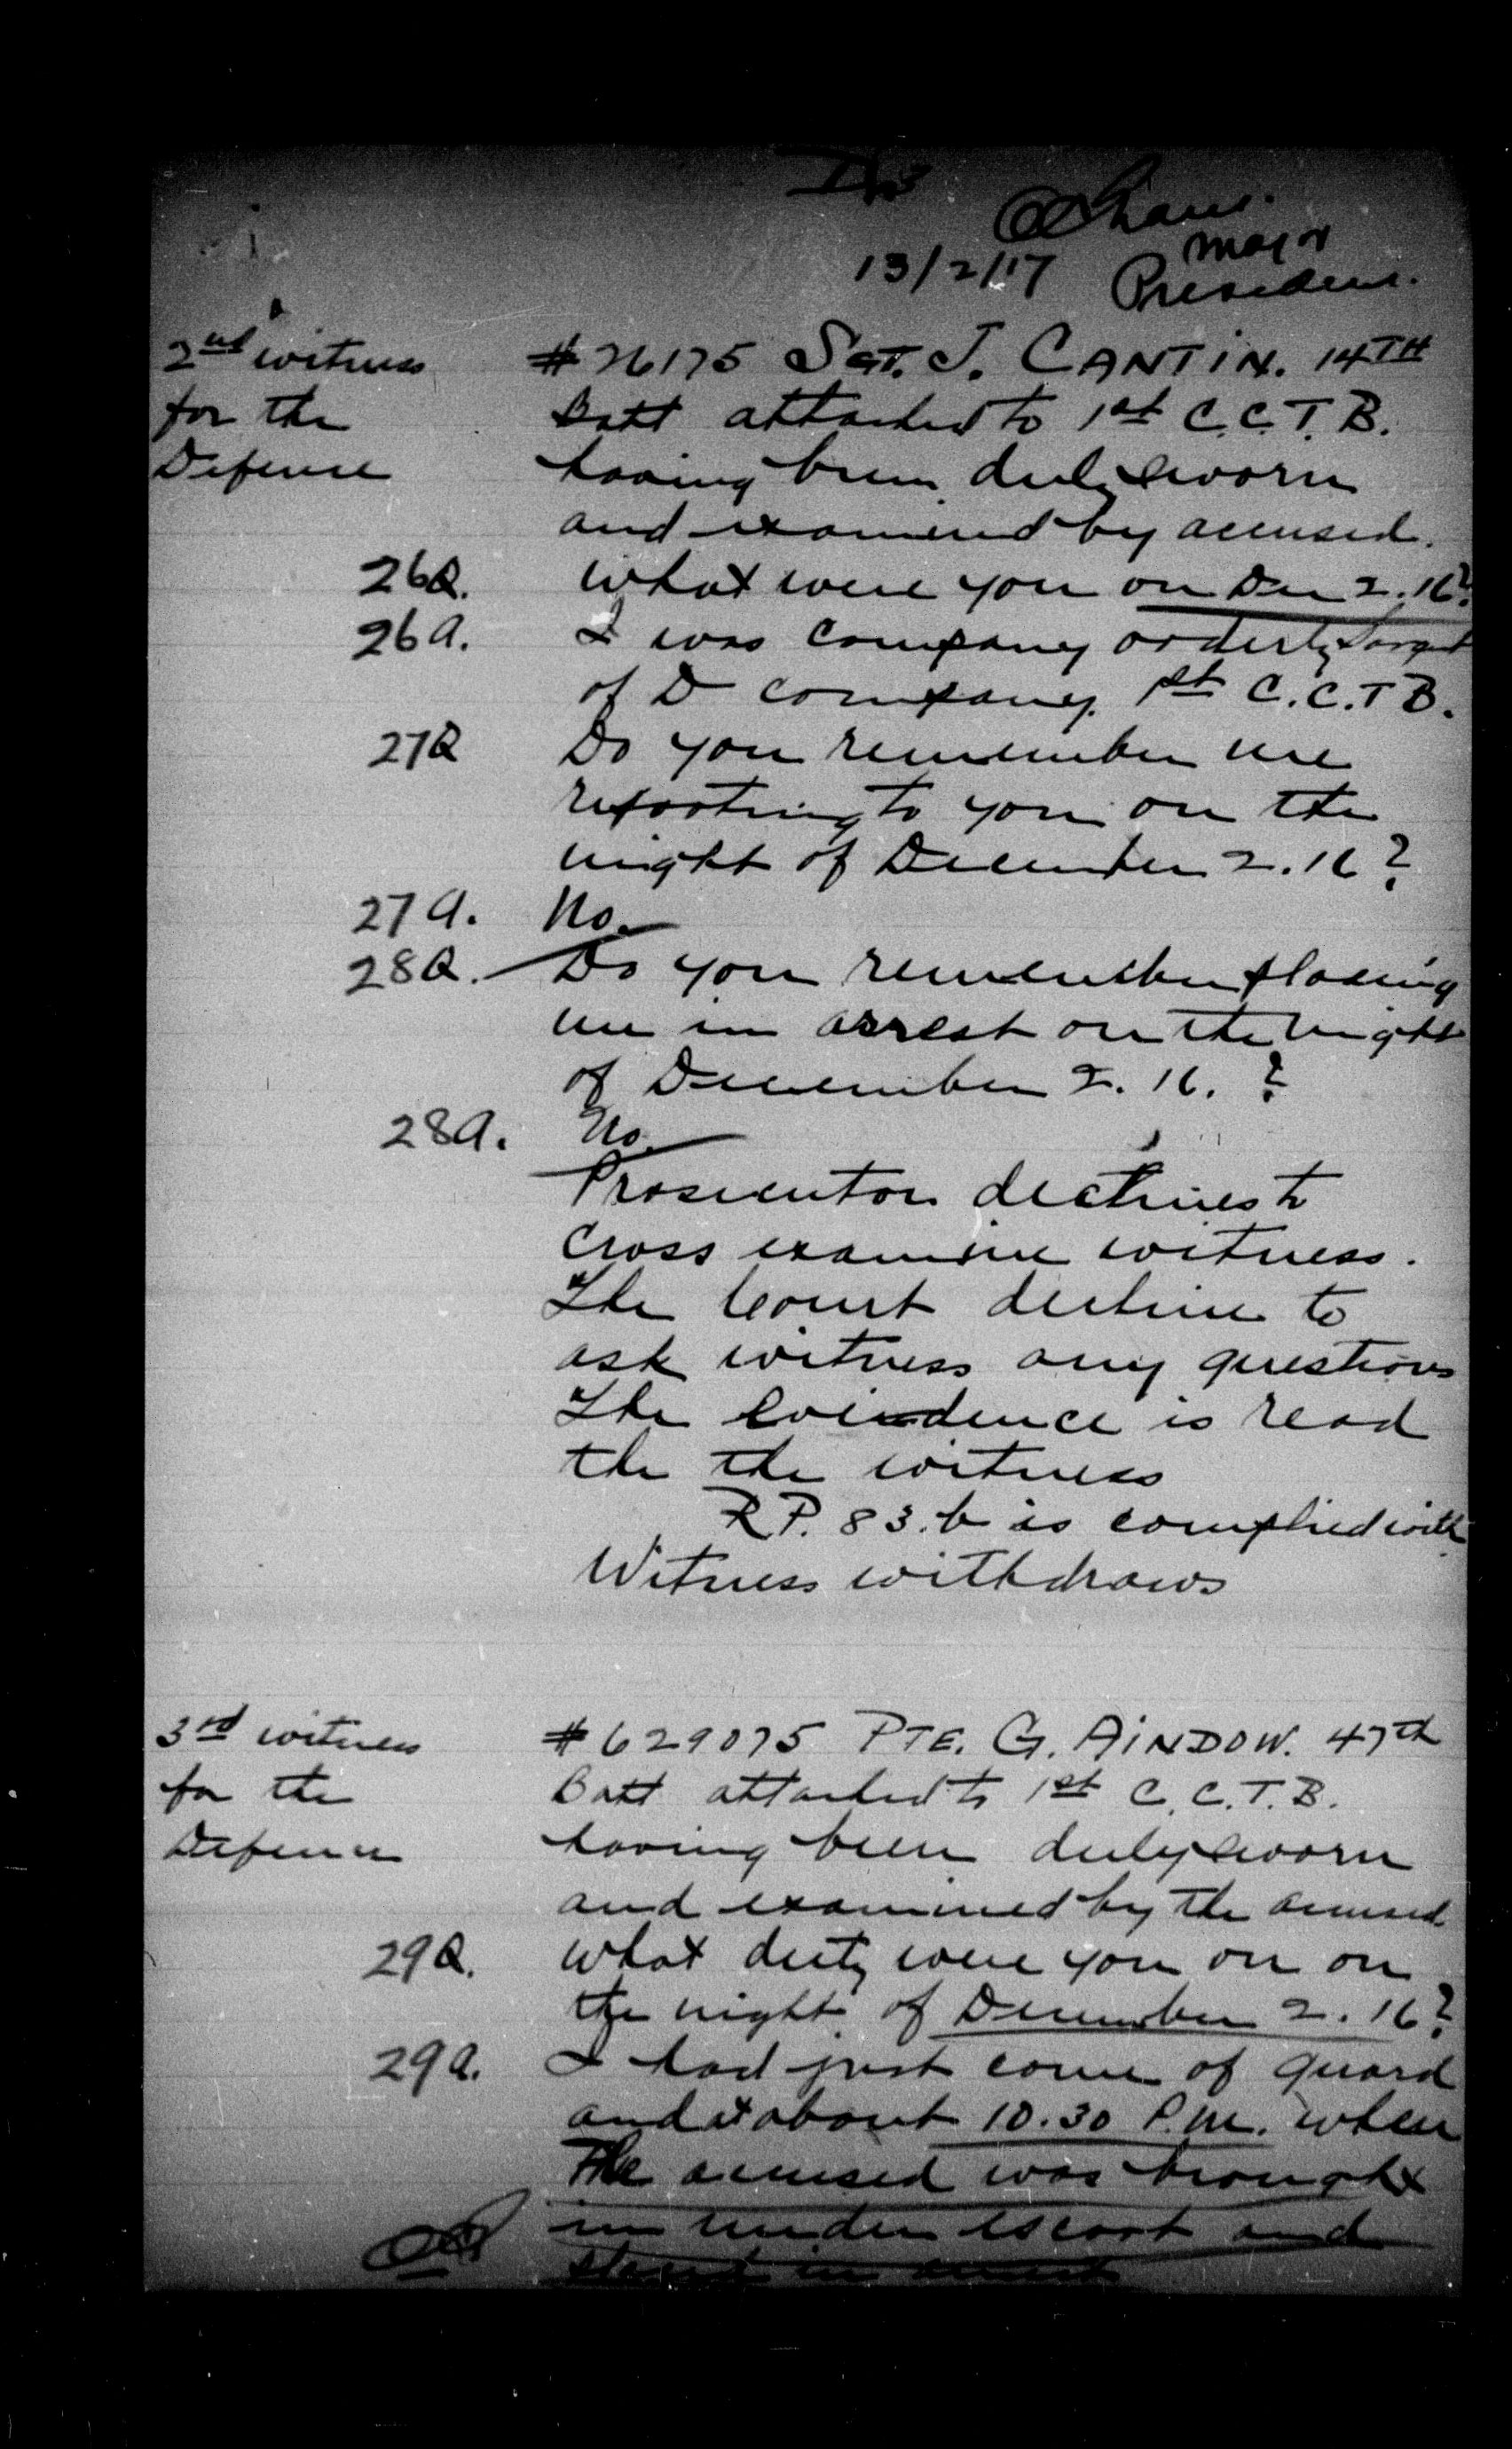 Major
13/2/17 President.
2nd witness # 26175 SGT. J. CANTIN. 14TH
for the Batt attached to 1st C.C.T.B.
Defence having been duly sworn
and examined by accused.
26Q. What were you on Dec 2.16?
26A. I was company orderly Sargent
of D company. 1st C.C.T B.
27Q Do you remember me
reporting to you on the
night of December 2.16?
27A. No.
28Q. Do you remember placing
me in arrest on the night
of December 2. 16. ?
28A. No.
Prosecutor declines to
cross examine witness.
The Court decline to
ask witness any questions
The Evidence is read
the the witness
R.P. 83.b is complied with
Witness withdraws
3rd witness # 629075 PTE. G. AINDOW. 47th
for the Batt attached to 1st C.C.T.B.
Defence having been duly sworn
and examined by the accused
29Q. What duty were you on on
the night of December 2. 16?
29A. I had just come of guard
and at about 10.30 P.M. when
The accused was brought
in under escort and
in arrest